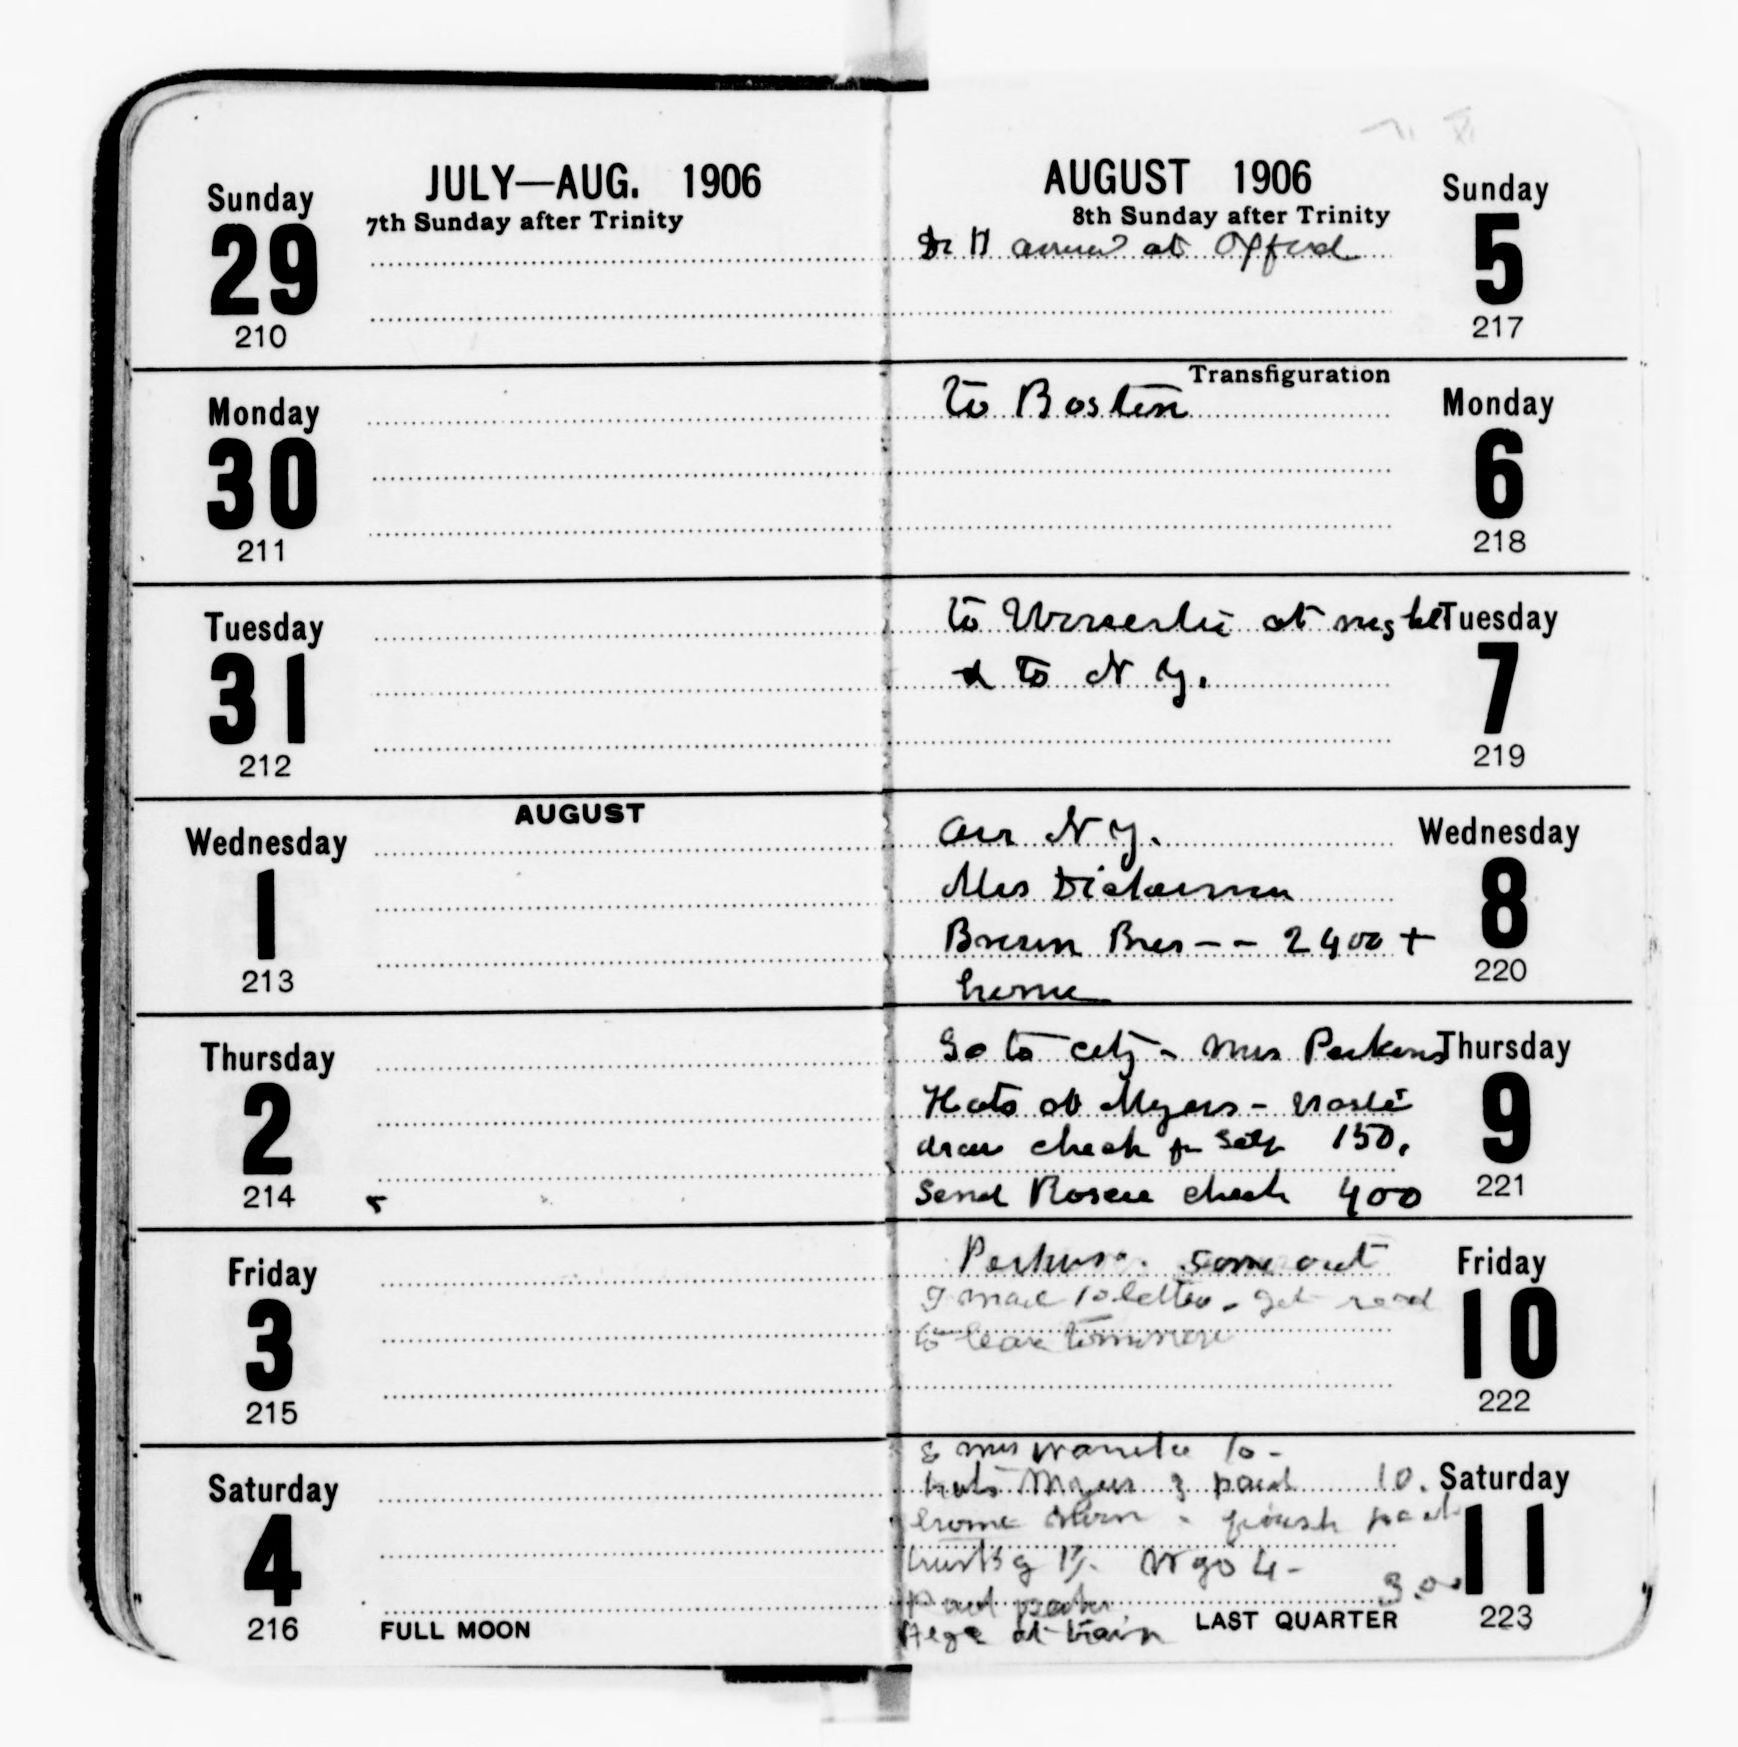 JULY—AUG. 1906
Sunday
29
210
7th Sunday after Trinity
Monday
30
211
Tuesday
31
212
AUGUST
Wednesday
1
213
Thursday
2
214
Friday
3
215
Saturday
4
216
FULL MOON
AUGUST 1906
Sunday
5
217
8th Sunday after Trinity
Dr H at
Monday
6
218
Transfiguration
to Boston
Tuesday
7
219
to at night
& to N Y.
Wednesday
8
220
arr N Y.
Mrs Dickerman
Brown Bros -- 2400 +
home
Thursday
9
221
Go to city - Mrs Perkins
Hats at Myers -
draw check for self 150.
Send Roscoe check 400
Friday
10
222
Perkins. come out
I mail 10 letters - get read
to leave tomorrow
Saturday
11
223
& Mrs 10 -
hats Myers & paid 10.
home - finish pack
go 4 -
Paid 3.00
at train
LAST QUARTER